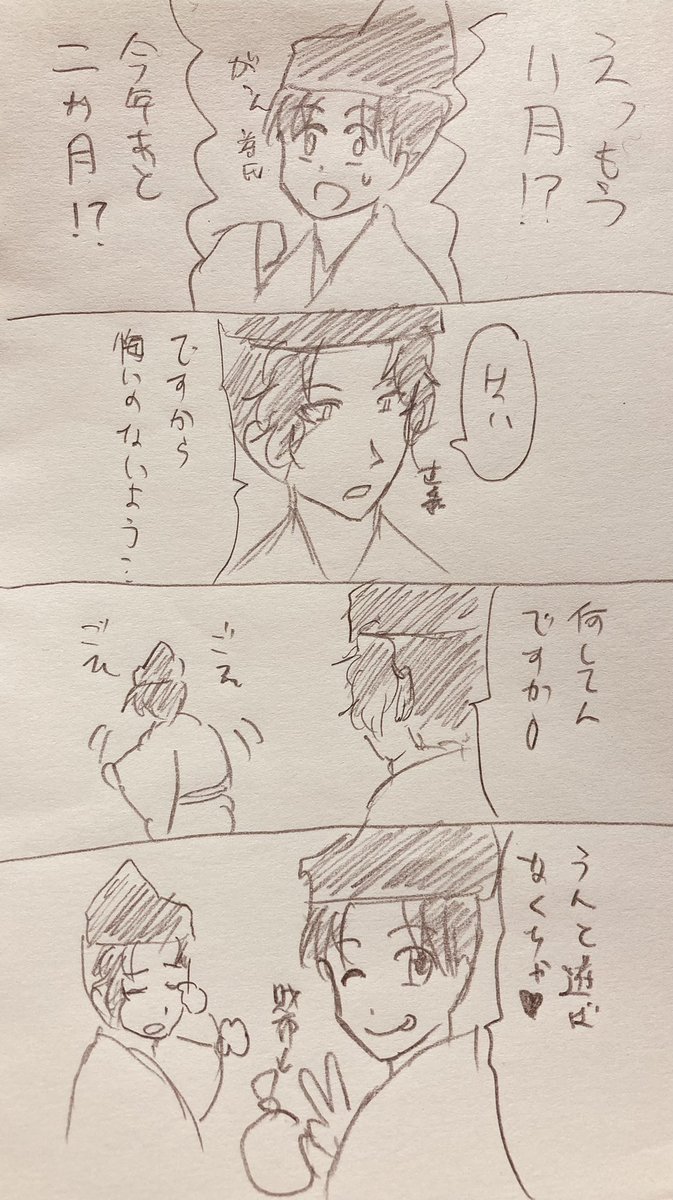 えっもう
11月!?
がーん
尊氏
今年あと
二か月!?
はい
ですから
悔いのないよう…
何してん
ですか
ごそ
ごそ
うんと遊ば
なくちゃ♥
財布→